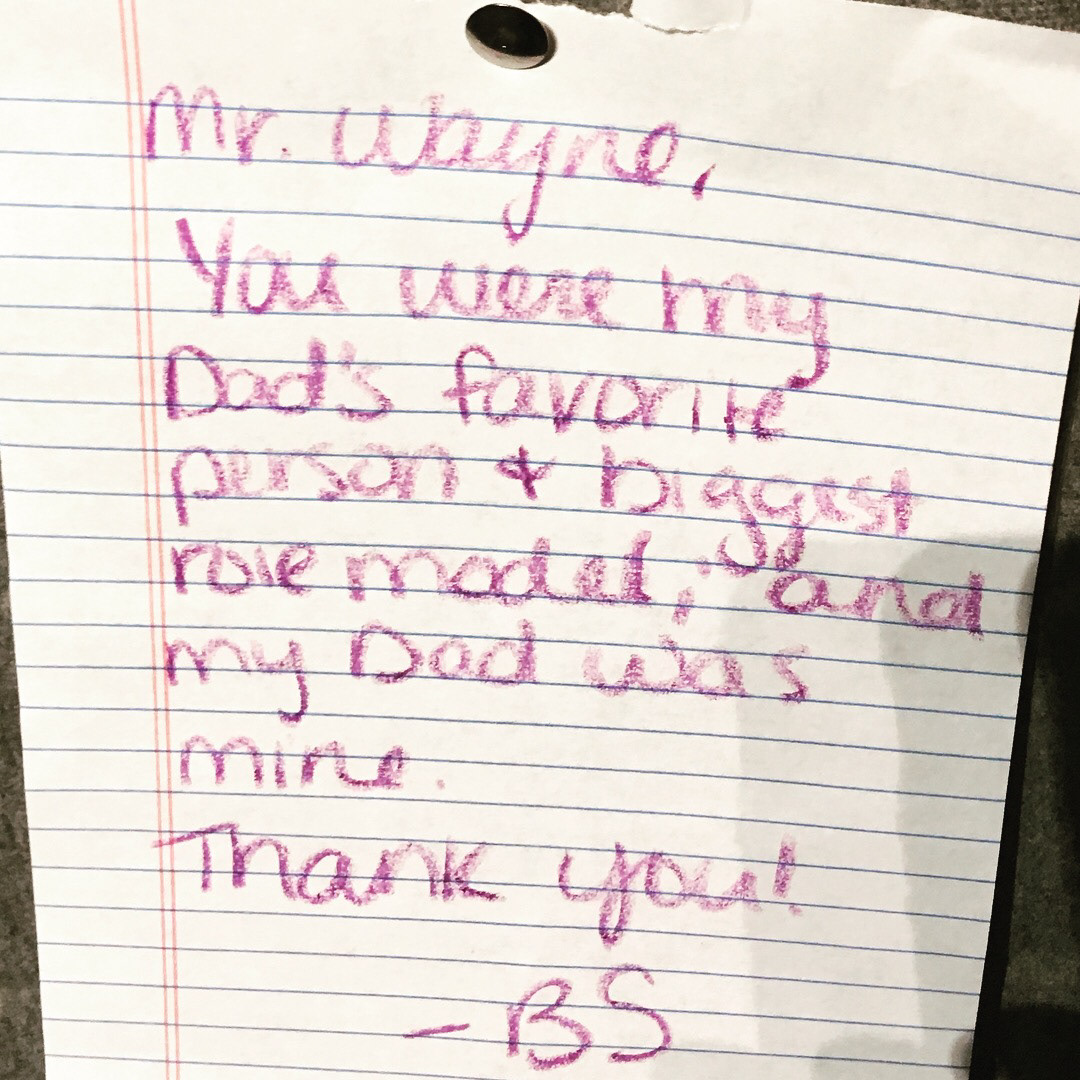 Mr. Wayne,
You were my
Dad's favorite
person & biggest
role model; and
my Dad was
mine.
Thank you!
- BS